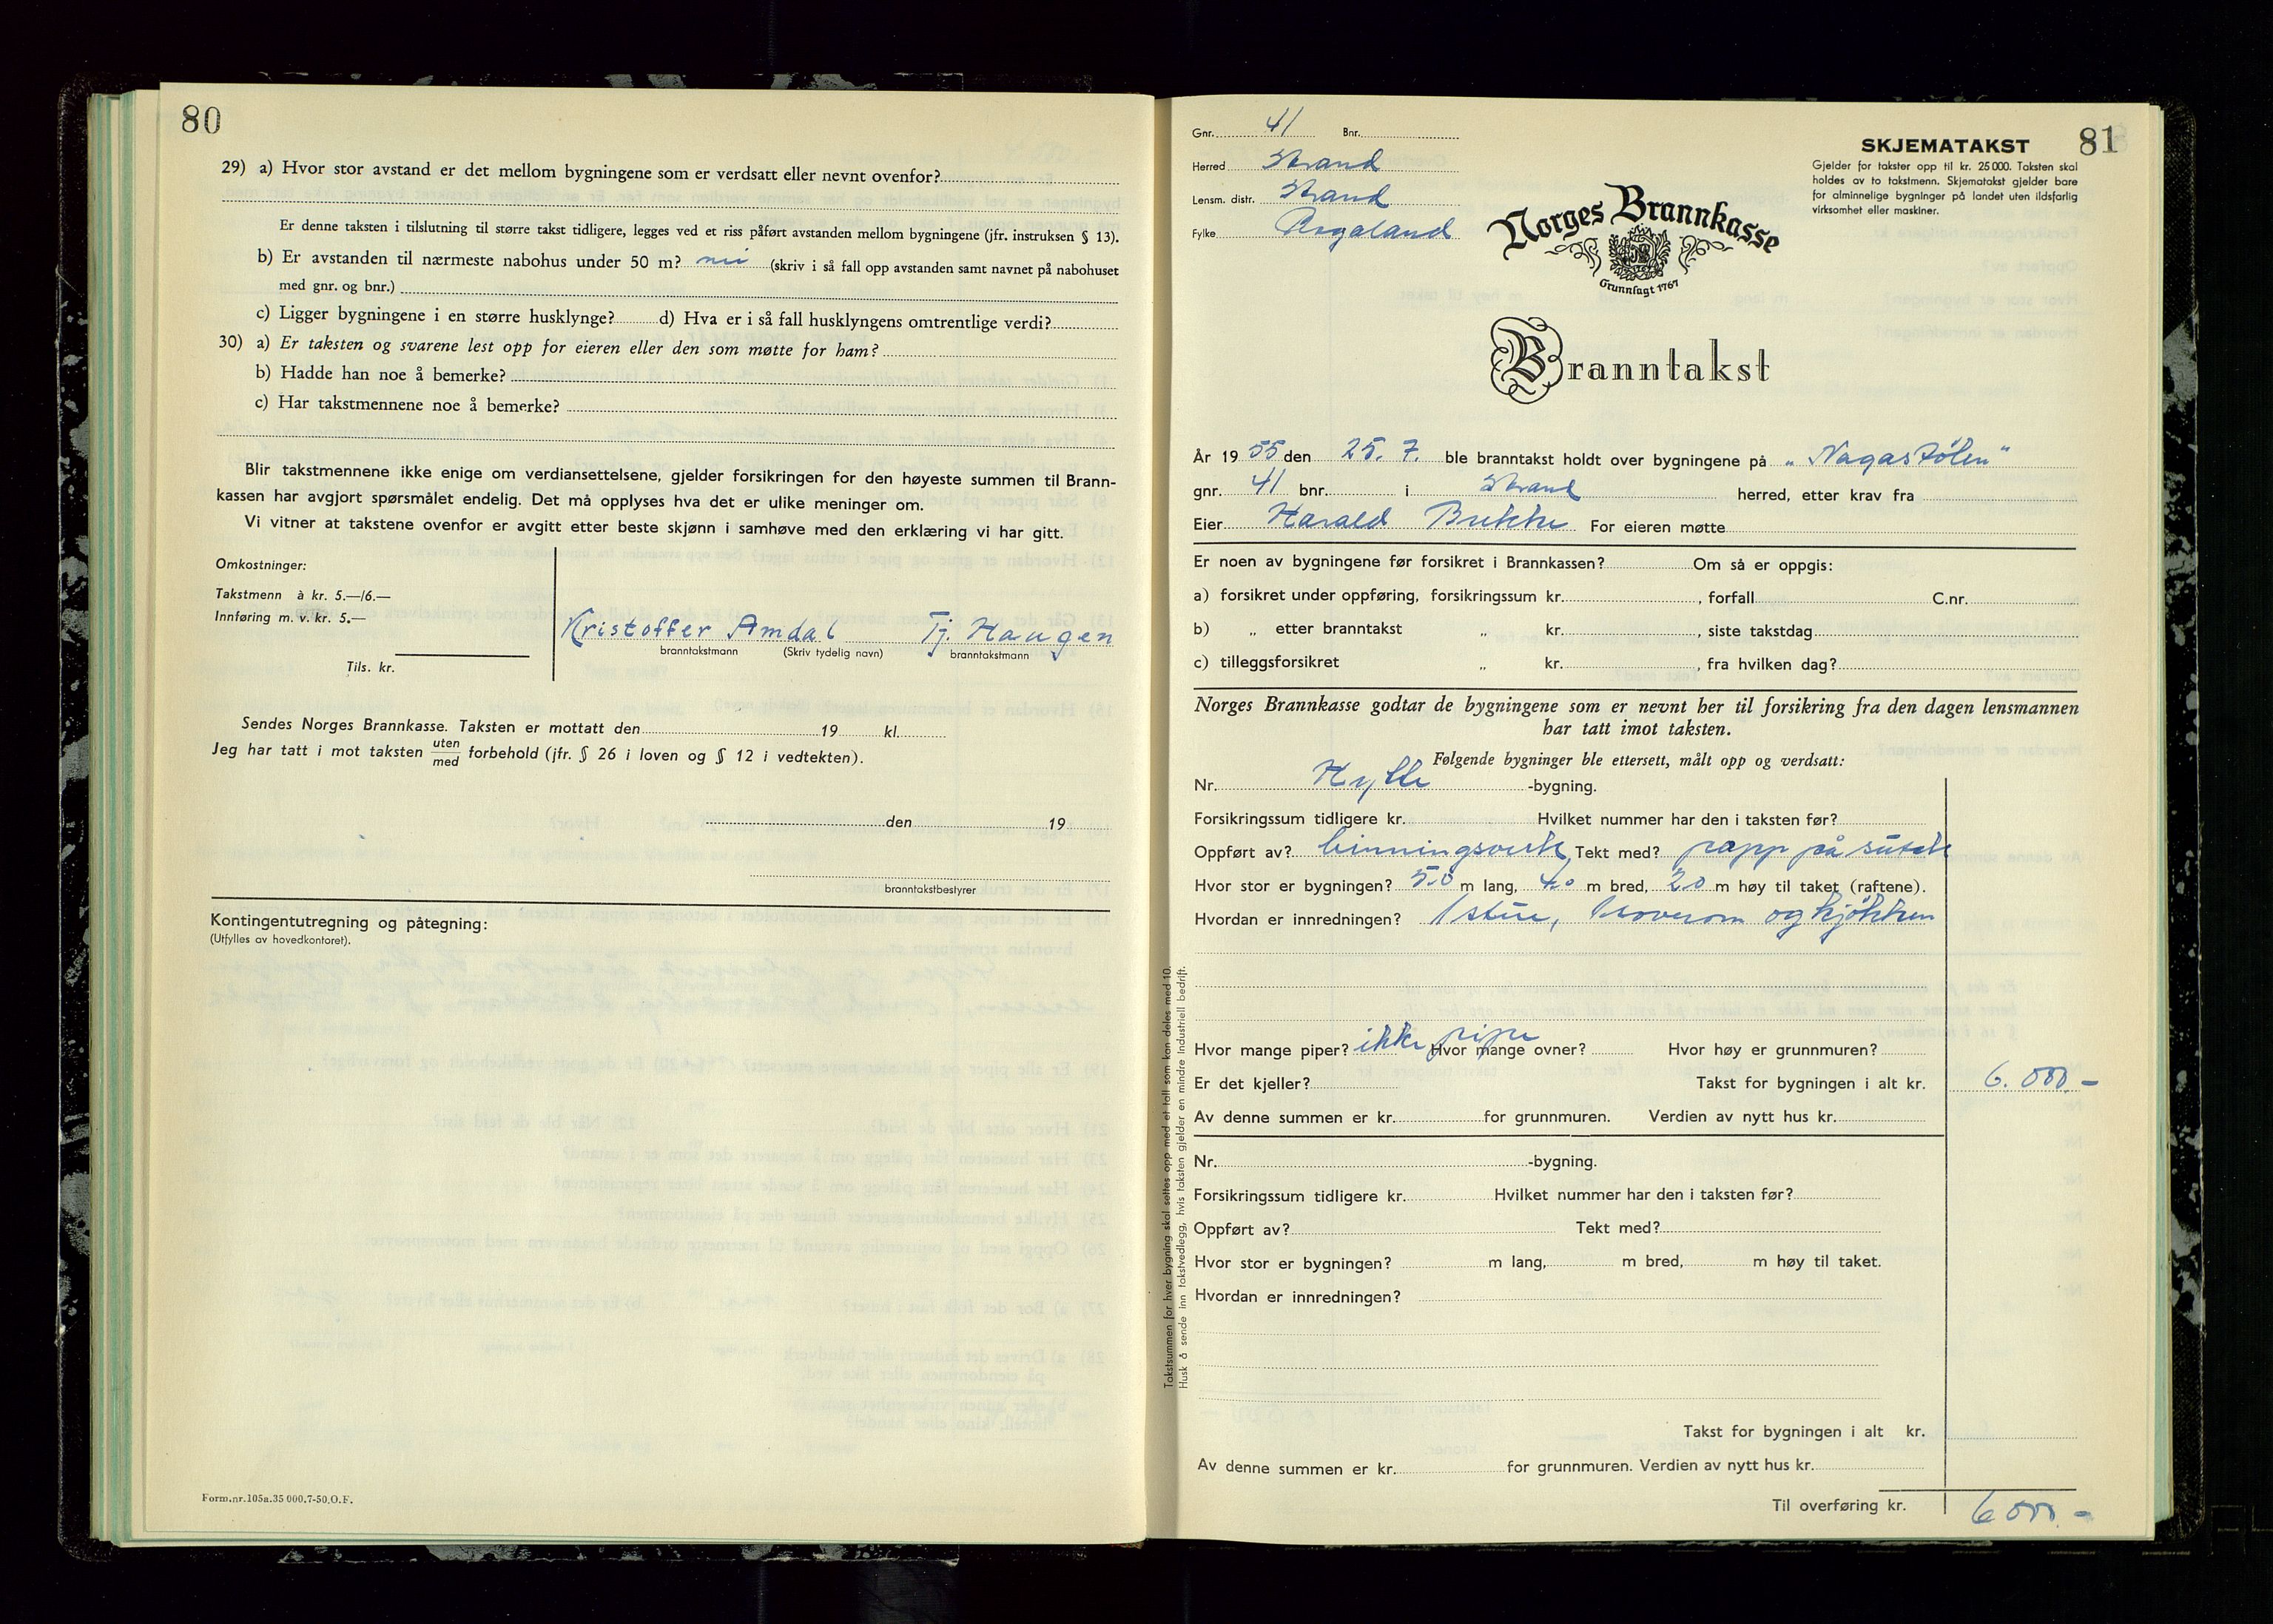 80
29) a) Hvor stor avstand er det mellom bygningene som er verdsatt eller nevnt ovenfor?
Er denne taksten i tilslutning til større takst tidligere, legges ved et riss påført avstanden mellom bygningene (jfr. instruksen § 13).
b) Er avstanden til nærmeste nabohus under 50 m? nei (skriv i så fall opp avstanden samt navnet på nabohuset
med gnr. og bnr.)
c) Ligger bygningene i en større husklynge? d) Hva er i så fall husklyngens omtrentlige verdi?
30) a) Er taksten og svarene lest opp for eieren eller den som møtte for ham?
b) Hadde han noe å bemerke?
c) Har takstmennene noe å bemerke?
Blir takstmennene ikke enige om verdiansettelsene, gjelder forsikringen for den høyeste summen til Brann-
kassen har avgjort spørsmålet endelig. Det må opplyses hva det er ulike meninger om.
Vi vitner at takstene ovenfor er avgitt etter beste skjønn i samhøve med den erklæring vi har gitt.
Omkostninger:
Takstmenn à kr. 5.—/6.—
Innføring m. v. kr. 5.—
Tils. kr.
Kristoffer Amdal Tj. Haugen
branntakstmann (Skriv tydelig navn) branntakstmann
Sendes Norges Brannkasse. Taksten er mottatt den 19 kl.
Jeg har tatt i mot taksten uten med forbehold (jfr. § 26 i loven og § 12 i vedtekten).
den 19
branntakstbestyrer
Kontingentutregning og påtegning:
(Utfylles av hovedkontoret).
Form.nr.105a.35 000.7-50.O.F.
81
Gnr. 41 Bnr.
Herred Strand
Lensm. distr. Strand
Fylke Rogaland
SKJEMATAKST
Gjelder for takster opp til kr. 25 000. Taksten skal
holdes av to takstmenn. Skjematakst gjelder bare
for alminnelige bygninger på landet uten ildsfarlig
virksomhet eller maskiner.
Norges Brannkasse
Grunnlagt 1767
Branntakst
År 1955 den 25. 7. ble branntakst holdt over bygningene på „Nagastölen"
gnr. 41 bnr. i Strand herred, etter krav fra
Eier Harald For eieren møtte
Er noen av bygningene før forsikret i Brannkassen? Om så er oppgis:
a) forsikret under oppføring, forsikringssum kr. , forfall C.nr.
b) „ etter branntakst „ kr. , siste takstdag
c) tilleggsforsikret „ kr. , fra hvilken dag?
Norges Brannkasse godtar de bygningene som er nevnt her til forsikring fra den dagen lensmannen
har tatt imot taksten.
Følgende bygninger ble ettersett, målt opp og verdsatt:
Nr. Hytte -bygning.
Forsikringssum tidligere kr. Hvilket nummer har den i taksten før?
Oppført av? binningsverk Tekt med? papp på sutak
Hvor stor er bygningen? 5.0 m lang, 4.0 m bred, 2.0 m høy til taket (raftene).
Hvordan er innredningen? 1 stue, 1 soverom og kjökken
Hvor mange piper? ikke pipe Hvor mange ovner? Hvor høy er grunnmuren?
Er det kjeller? Takst for bygningen i alt kr. 6.000.-
Av denne summen er kr. for grunnmuren. Verdien av nytt hus kr.
Nr. -bygning.
Forsikringssum tidligere kr. Hvilket nummer har den i taksten før?
Oppført av? Tekt med?
Hvor stor er bygningen? m lang, m bred, m høy til taket.
Hvordan er innredningen?
Takst for bygningen i alt kr.
Av denne summen er kr. for grunnmuren. Verdien av nytt hus kr.
Til overføring kr. 6000.-
Takstsummen for hver bygning skal settes opp med et tall som kan deles med 10.
Husk å sende inn takstvedlegg, hvis taksten gjelder en mindre industriell bedrift.